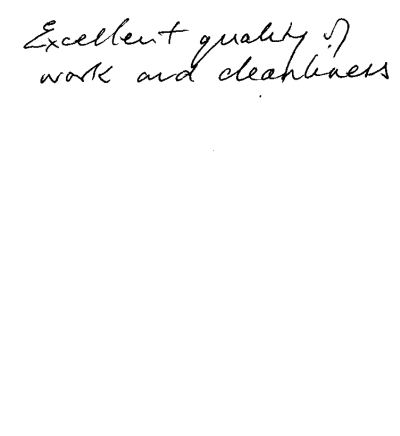 Excellent quality of
work and cleanliness